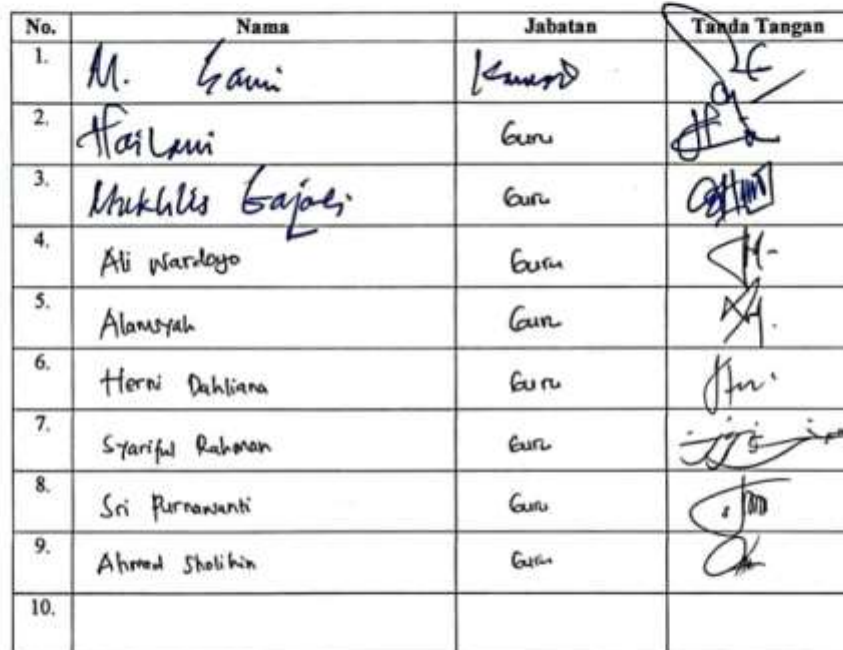 No. Nama Jabatan Tanda Tangan
1. M.
2. Guru
3. Mukhlis Gajali Guru
4. Ali Wardoyo Guru
5. Alamsyah Guru
6. Herni Dahliana Guru
7. Syariful Rahman Guru
8. Sri Purnawanti Guru
9. Ahmad Sholihin Guru
10.